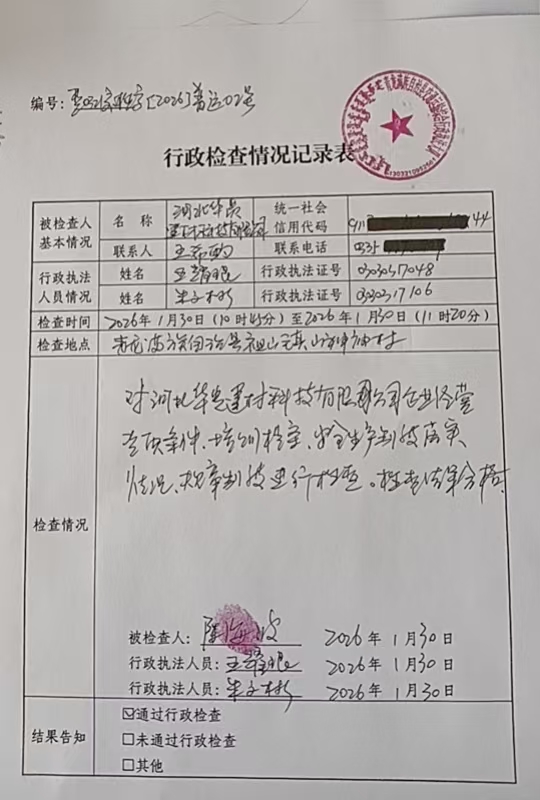 编号: [2026]普运02号
行政检查情况记录表
被检查人基本情况
名 称 河北华 建材科技有限公司
统一社会信用代码 911 44
联系人 王
联系电话 0335
行政执法人员情况
姓名 王 行政执法证号 0303017048
姓名 朱 彬 行政执法证号 0303017106
检查时间 2026年1月30日(10时45分)至2026年1月30日(11时20分)
检查地点 青龙满族自治县祖山镇山神庙村
检查情况
对河北华 建材科技有限公司企业经营
专项条件、培训档案、安全生产制度落实
情况、规章制度进行检查。检查结果合格。
被检查人: 海波 2026年 1月30日
行政执法人员: 王 2026年 1月30日
行政执法人员: 朱 彬 2026年 1月30日
结果告知
☑通过行政检查
☐未通过行政检查
☐其他